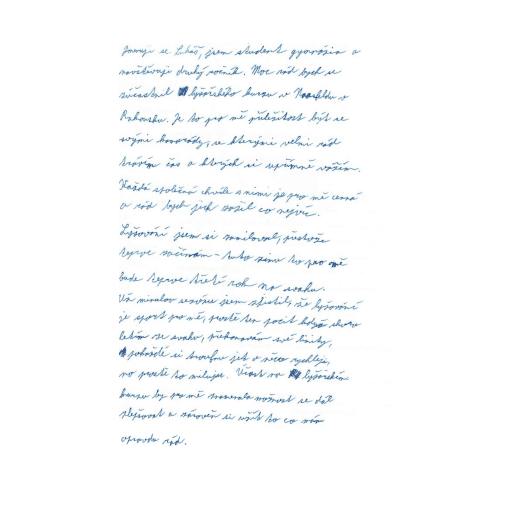 Jmenuji se Lukáš, jsem student gymnázia a
navštěvuji druhý ročník. Moc rád bych se
zúčastnil lyžařského kurzu v Nassfeldu v
Rakousku. Je to pro mě příležitost být se
svými kamarády, se kterými velmi rád
trávím čas a kterých si upřímně vážím.
Každá společná chvíle s nimi je pro mě cenná
a rád bych jich zažil co nejvíc.
Lyžování jsem si zamiloval, přestože
teprve začínám - tuto zimu to pro mě
bude teprve třetí rok na svahu.
Už minulou sezónu jsem zjistil, že lyžování
je sport pro mě, prostě ten pocit když
letím ze svahu, překonávám své limity,
pokaždé si troufnu jet o něco rychleji,
no prostě to miluju. Účast na lyžařském
kurzu by pro mě znamenala možnost se dál
zlepšovat a zároveň si užít to co mám
opravdu rád.